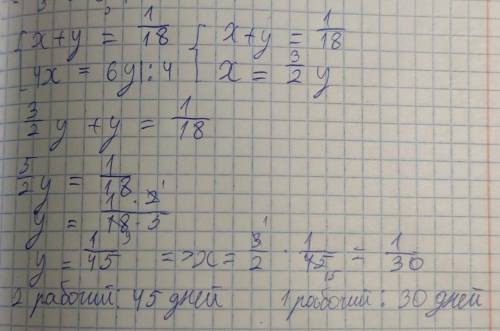 { x+y = 1/18 { x+y = 1/18
4x = 6y |:4 { x = 3/2 y
3/2 y + y = 1/18
5/2 y = 1/18
y = 1·2/18·5
y = 1/45 => x = 3/2 · 1/45 = 1/30
2 рабочий: 45 дней 1 рабочий: 30 дней